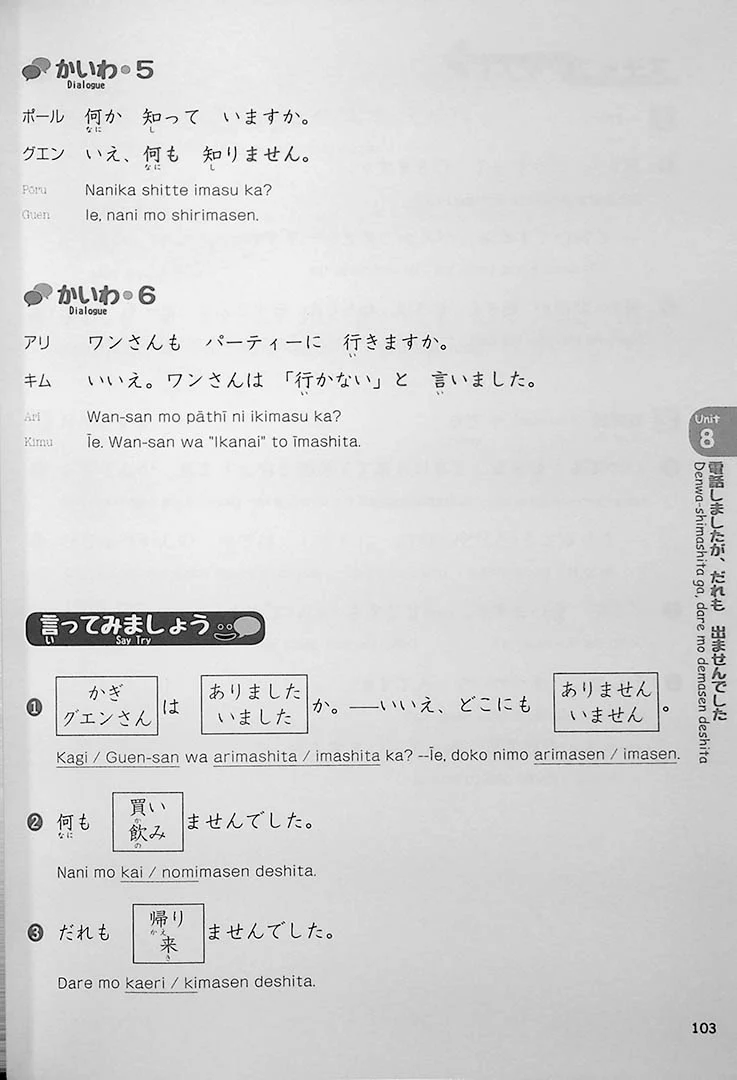 かいわ・5
Dialogue
ポール 何か 知って いますか。
なに し
グエン いえ、何も 知りません。
なに し
Pōru Nanika shitte imasu ka?
Guen Ie, nani mo shirimasen.
かいわ・6
Dialogue
アリ ワンさんも パーティーに 行きますか。
い
キム いいえ。ワンさんは 「行かない」と 言いました。
い い
Ari Wan-san mo pāthī ni ikimasu ka?
Kimu Īe. Wan-san wa "Ikanai" to īmashita.
Unit
8
電話しましたが、だれも 出ませんでした
Denwa-shimashita ga, dare mo demasen deshita
言ってみましょう
い Say Try
かぎ ありました ありません
❶ は か。――いいえ、どこにも 。
グエンさん いました いません
Kagi / Guen-san wa arimashita / imashita ka? --Īe, doko nimo arimasen / imasen.
買い
か
❷ 何も ませんでした。
なに
飲み
の
Nani mo kai / nomimasen deshita.
帰り
かえ
❸ だれも ませんでした。
来
き
Dare mo kaeri / kimasen deshita.
103